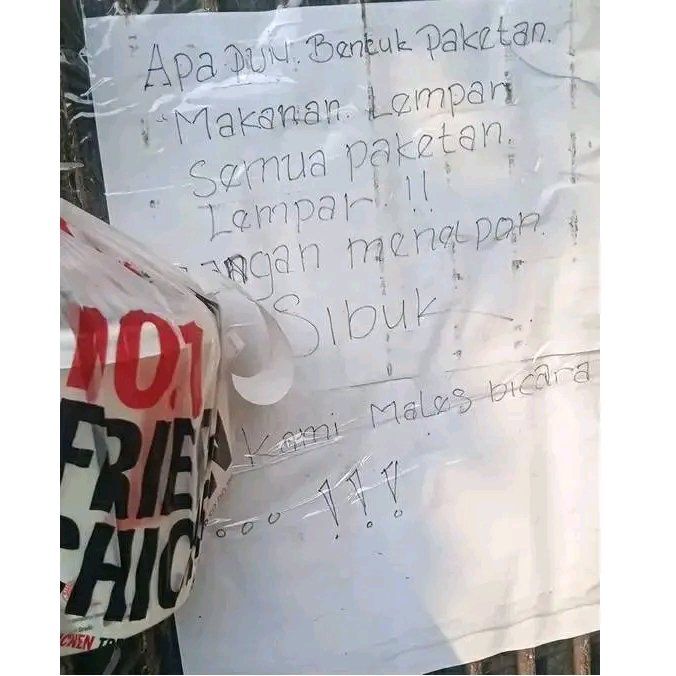 Apa PUN. Bentuk Paketan.
"Makanan. Lempar
Semua paketan.
Lempar. !!
angan menelpon.
Sibuk
Kami Males bicara
... !!!
NO.1
FRIE
CHIC